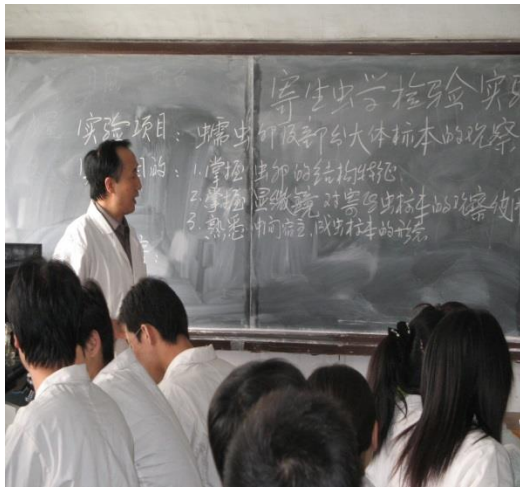 寄生虫学检验实
实验项目：蠕虫卵及部分大体标本的观察
目的：1.掌握虫卵的结构特征.
2.掌握显微镜对寄生虫标本的观察
3.熟悉中间宿主,成虫标本的形态